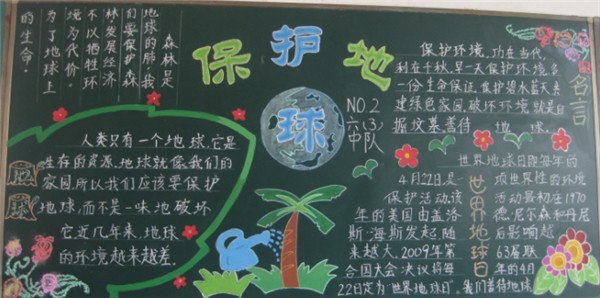 森林是
地球的肺,我
们要保护森
林,发展经济
不以牺牲环
境为代价。
为了地球上
的生命。
保护地
球
NO.2
六(3)
中队
保护环境,功在当代,
利在千秋,早一天保护环境,多
一份生命保证,保护碧水蓝天,共
建绿色家园,破坏环境就是自
掘坟墓,善待地球。
名言
人类只有一个地球,它是
生存的资源,地球就像我们的
家园,所以我们应该要保护
地球,而不是一味地破坏
它,近几年来,地球
的环境越来越差.
地
球
世界地球日
世界地球日即每年的
4月22日是一项世界性的环境
保护活动,该活动最初在1970
年的美国由盖洛德·尼尔森和丹尼
斯·海斯发起,随后影响越
来越大.2009年第63届联
合国大会决议将每年的4月
22日定为“世界地球日”.我们善待地球